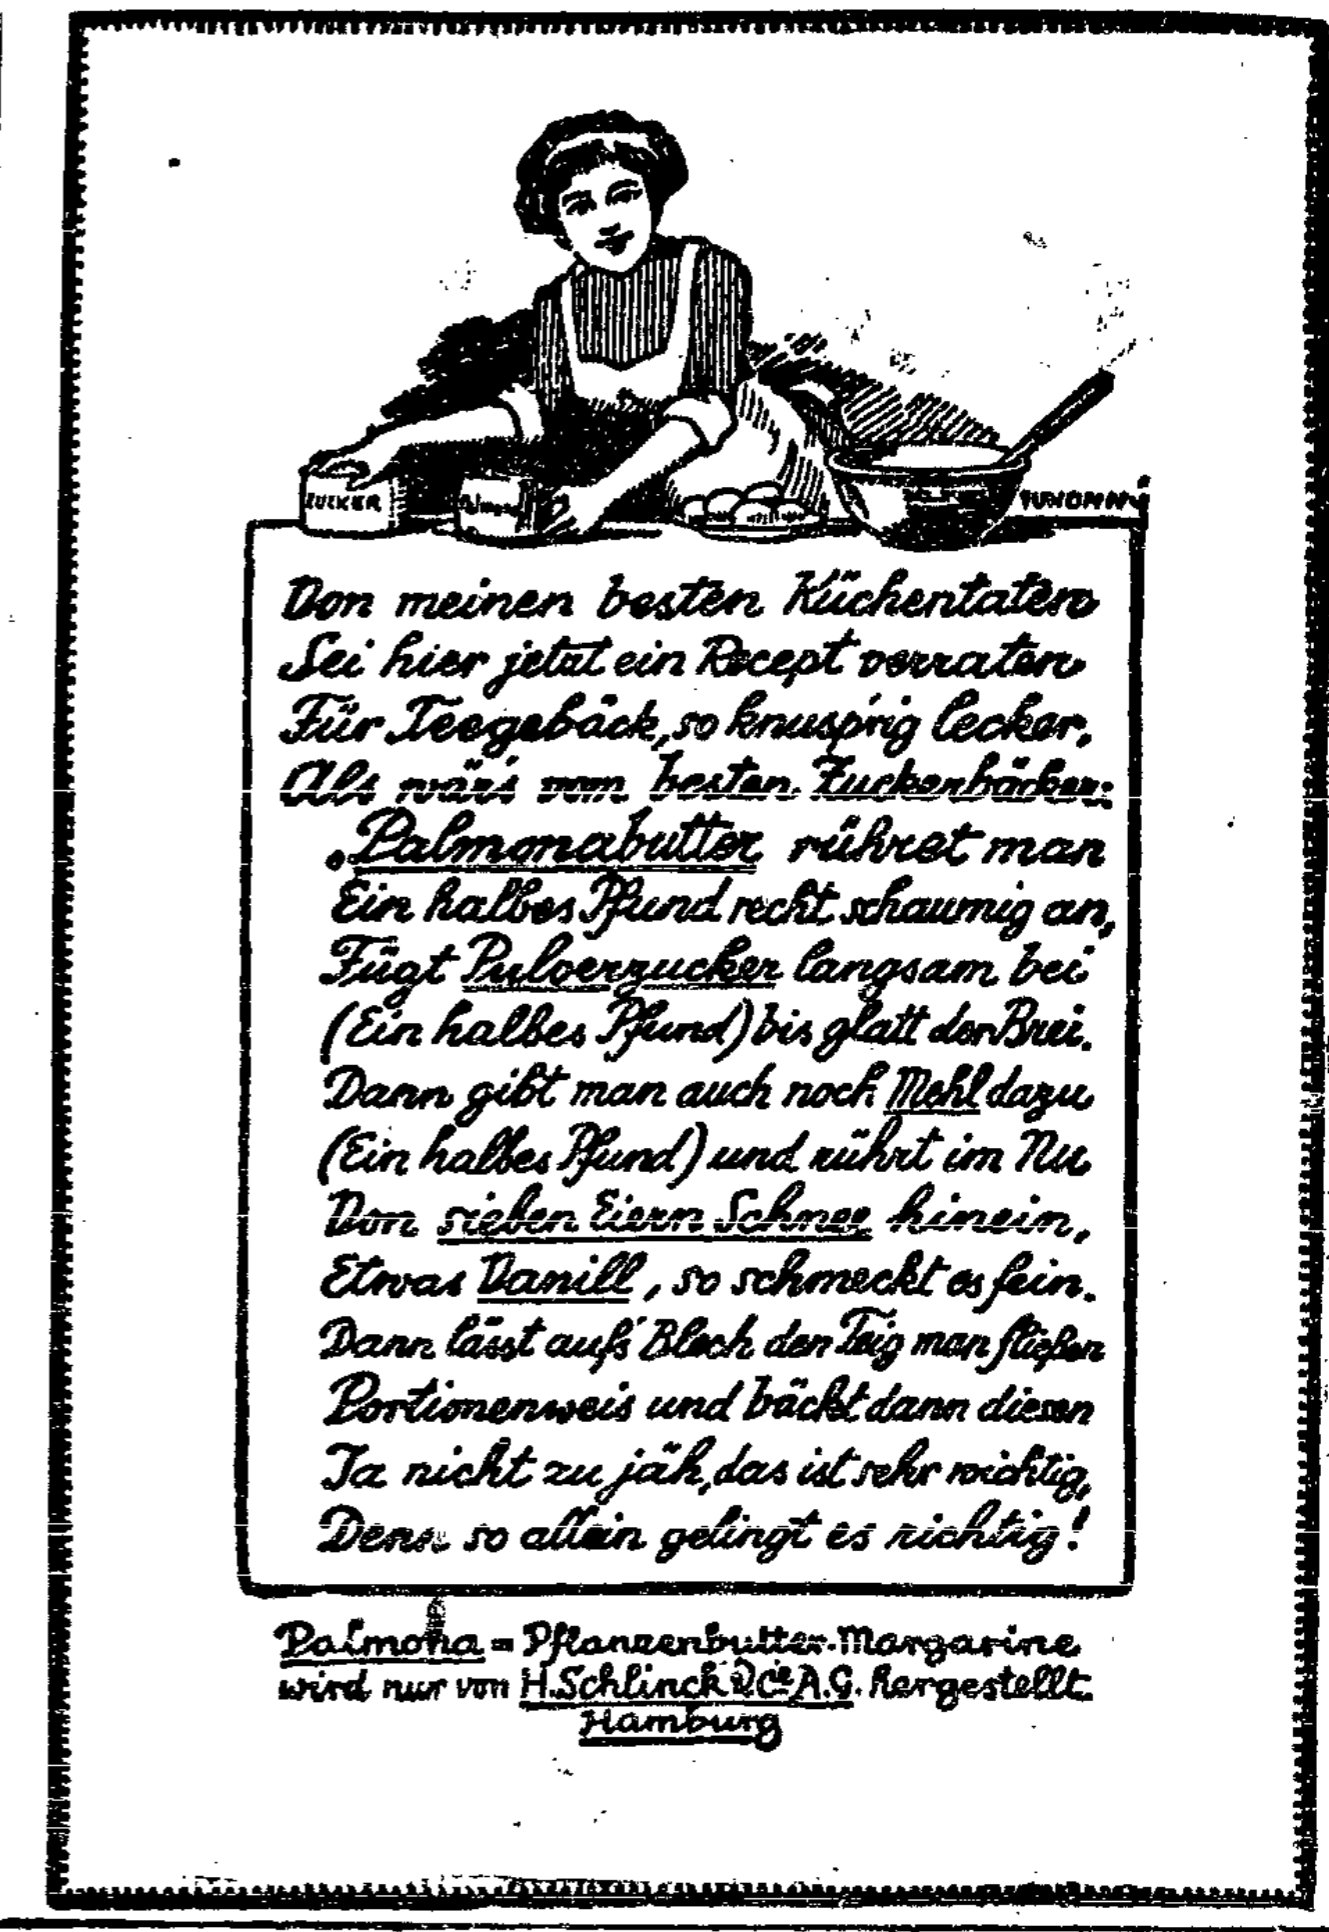 ZUCKER
Palmona
Von meinen besten Küchentaten
Sei hier jetzt ein Recept verraten
Für Teegebäck, so knusp'rig lecker,
Als wär's vom besten Zuckerbäcker:
„Palmonabutter rühret man
Ein halbes Pfund recht schaumig an,
Fügt Pulverzucker langsam bei
(Ein halbes Pfund) bis glatt der Brei.
Dann gibt man auch noch Mehl dazu
(Ein halbes Pfund) und rührt im Nu
Von sieben Eiern Schnee hinein,
Etwas Vanill, so schmeckt es fein.
Dann lässt auf's Blech den Teig man fließen
Portionenweis und bäckt dann diesen
Ja nicht zu jäh, das ist sehr wichtig,
Denn so allein gelingt es richtig!
Palmona = Pflanzenbutter-Margarine
wird nur von H. Schlinck & Cie A.G. hergestellt.
Hamburg